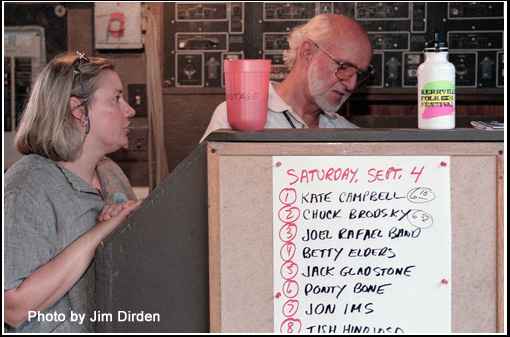 STAGE
KERRVILLE
FOLK
FESTIVAL
SATURDAY, SEPT. 4
1 KATE CAMPBELL 6:10
2 CHUCK BRODSKY
3 JOEL RAFAEL BAND
4 BETTY ELDERS
5 JACK GLADSTONE
6 PONTY BONE
7 JON IMS
8 TISH HINOJOSA
Photo by Jim Dirden